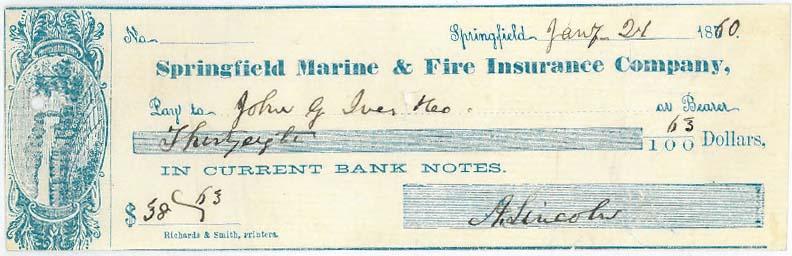 No. Springfield Jany 24 1860.
Springfield Marine & Fire Insurance Company,
Pay to John G Ives or Bearer
63
100 Dollars,
IN CURRENT BANK NOTES.
$38 63
A. Lincoln
Richards & Smith, printers.